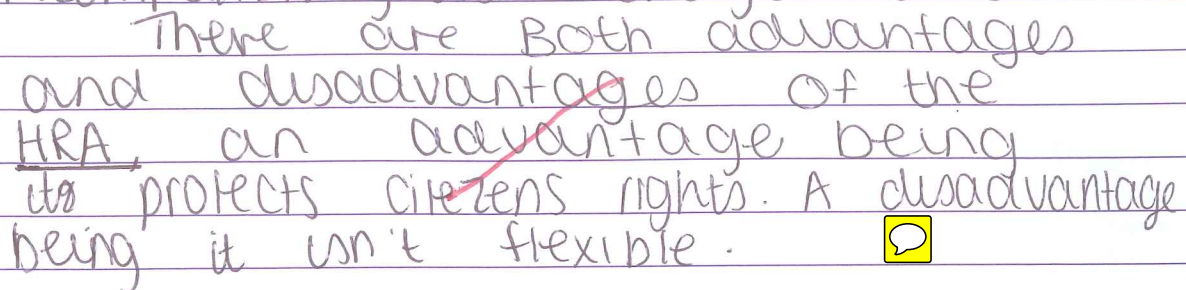 There are Both advantages
and disadvantages of the
HRA, an advantage being
its protects citezens rights. A disadvantage
being it isn't flexible.